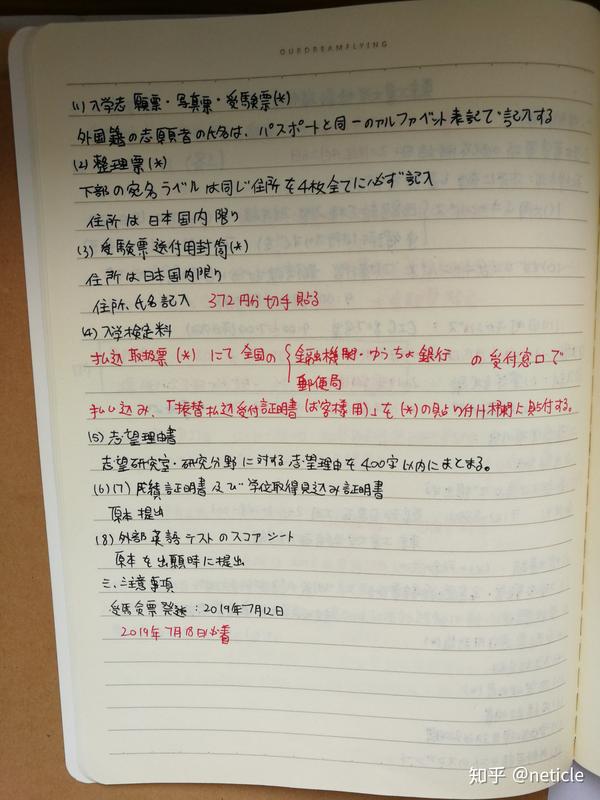 OURDREAMFLYING
(1) 入学志願票・写真票・受験票(*)
外国籍の志願者の氏名は、パスポートと同一のアルファベット表記で記入する
(2) 整理票(*)
下部の宛名ラベルは同じ住所を4枚全てに必ず記入
住所は日本国内限り
(3) 受験票送付用封筒(*)
住所は日本国内限り
住所、氏名記入 372円分切手貼る
(4) 入学検定料
払込取扱票(*)にて全国の{金融機関・ゆうちょ銀行 の受付窓口で
郵便局
払い込み、「振替払込受付証明書(お客様用)」を(*)の貼り付け欄に貼付する。
(5) 志望理由書
志望研究室・研究分野に対する志望理由を400字以内にまとまる。
(6)(7) 成績証明書及び学位取得見込み証明書
原本提出
(8) 外部英語テストのスコアシート
原本を出願時に提出
三、注意事項
受験票発送:2019年7月12日
2019年7月18日必着
知乎 @neticle